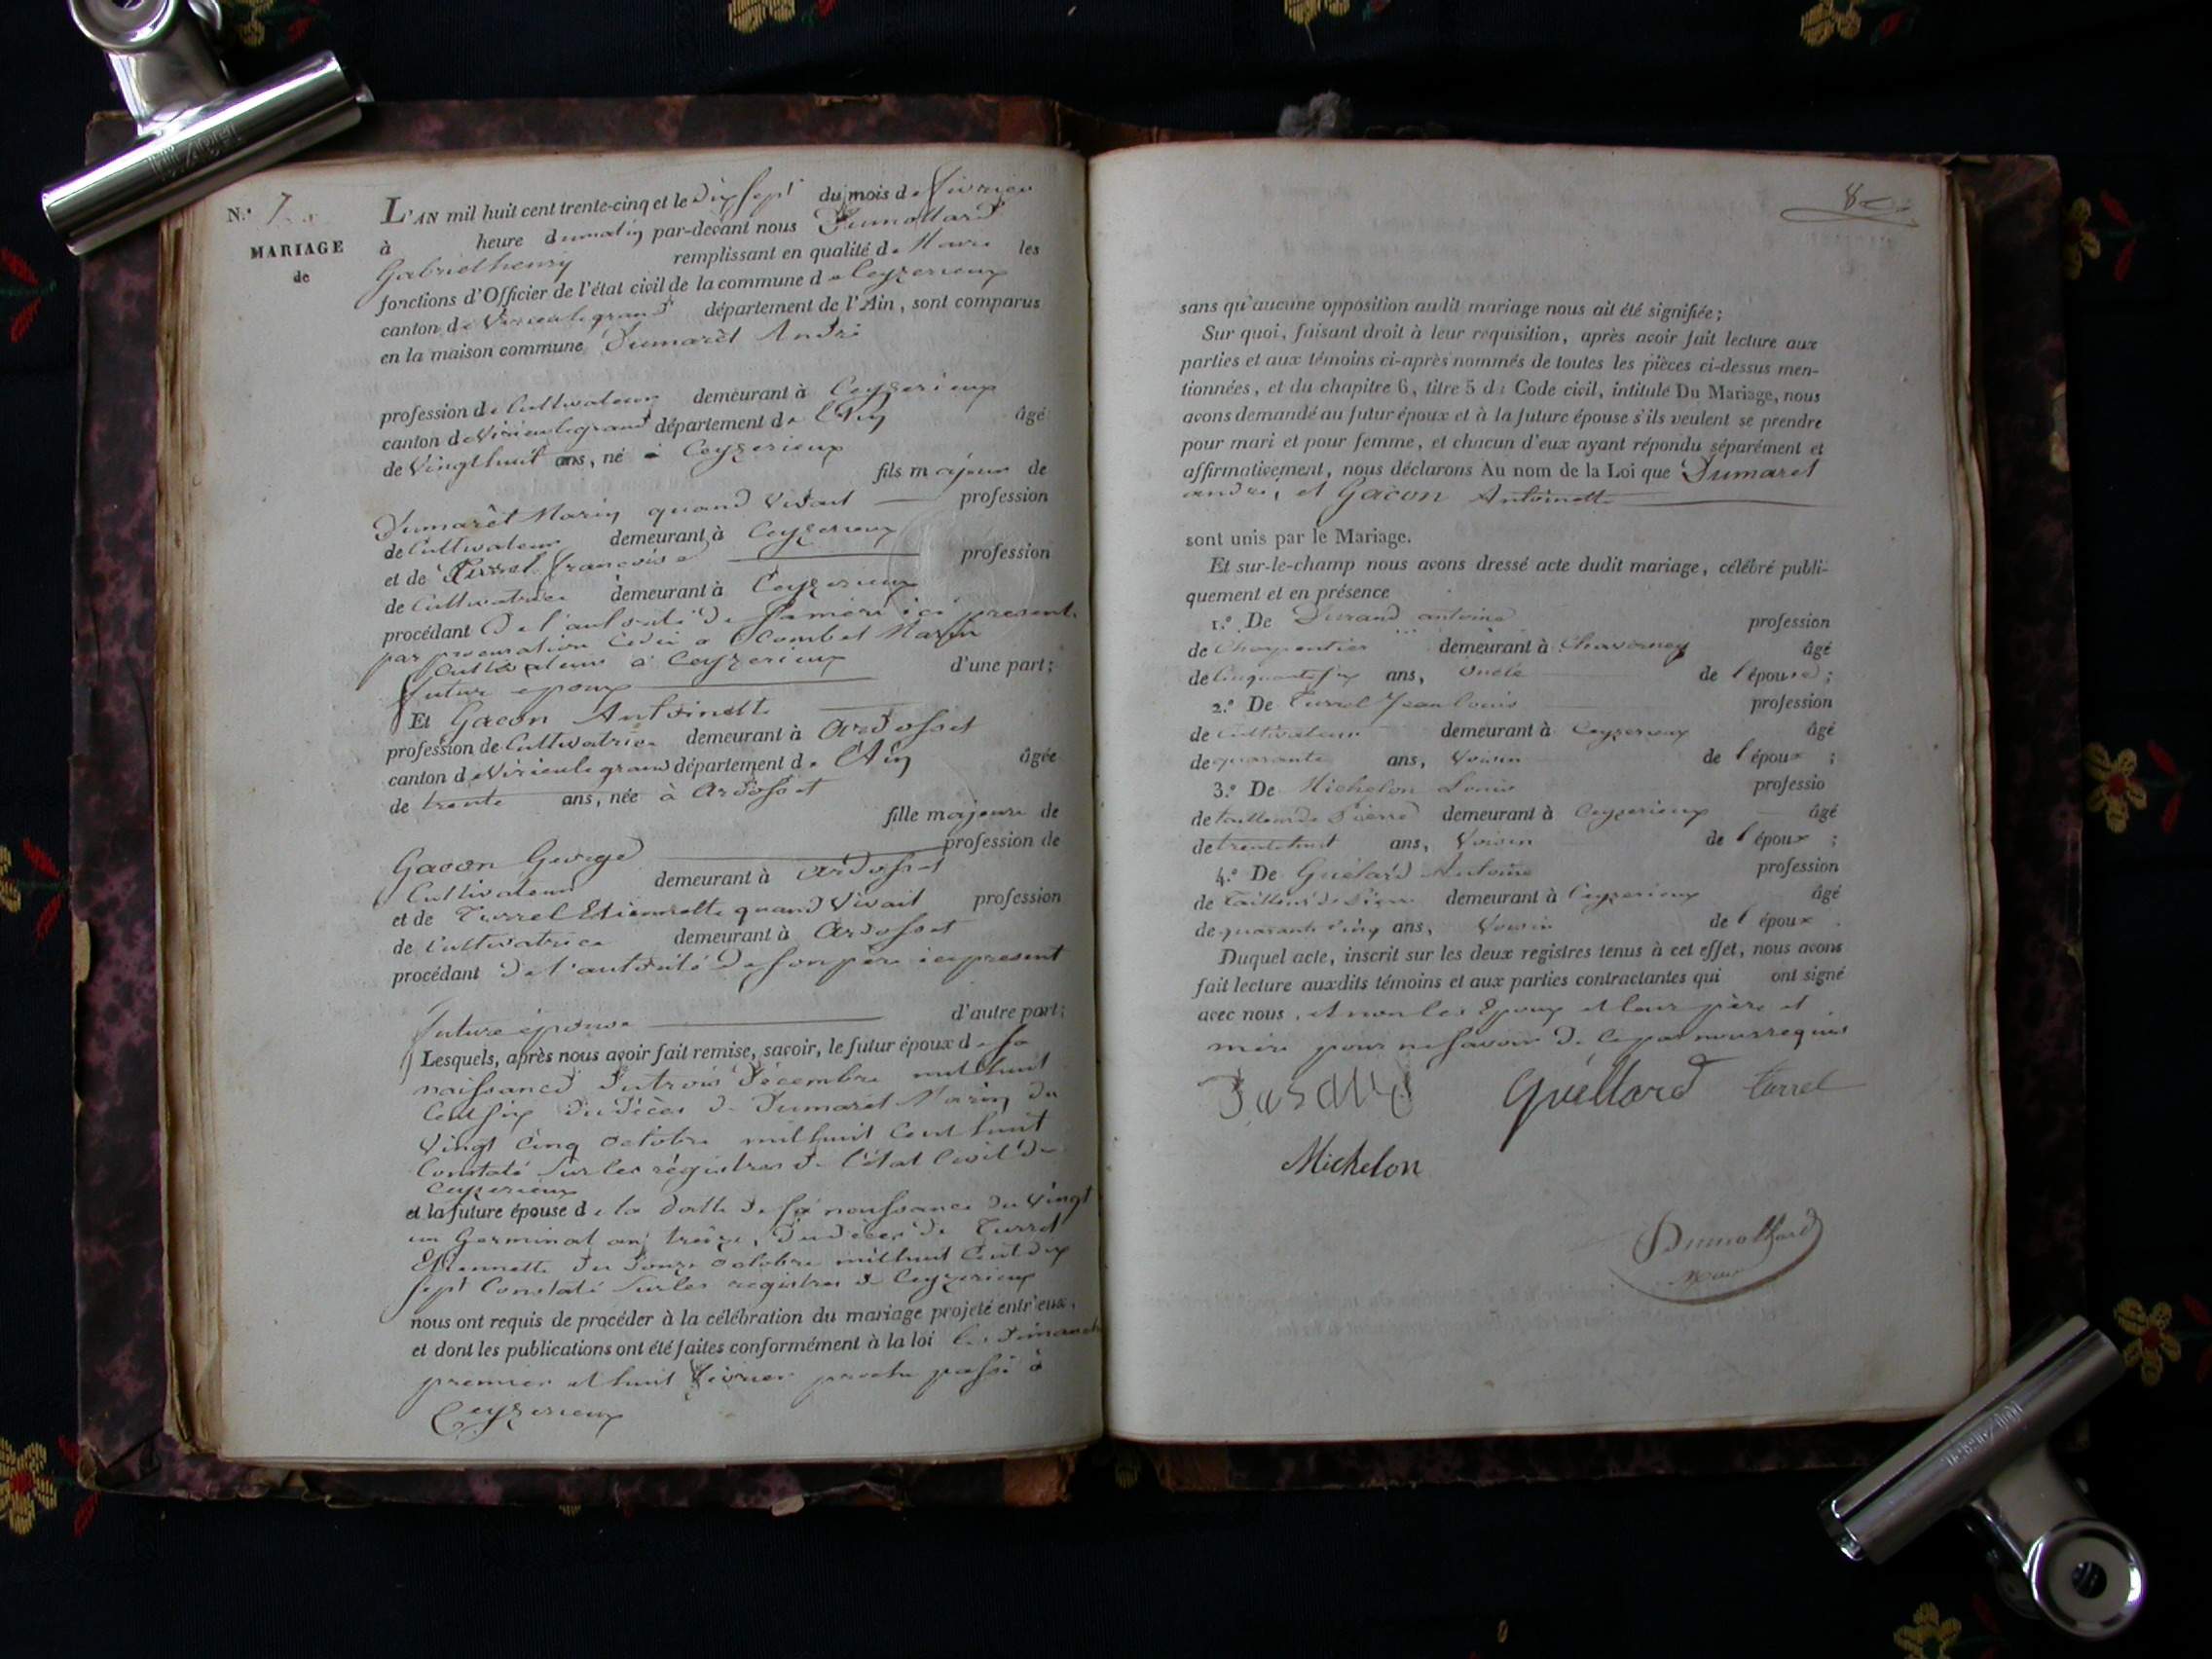 N.° 7
MARIAGE
de
L'AN mil huit cent trente-cinq et le Dix sept du mois de fevrier
à heure du matin par-devant nous Dumollard
Gabriel henry remplissant en qualité de Maire les
fonctions d'Officier de l'état civil de la commune de Ceyzerieux
canton de Virieulegrand département de l'Ain, sont comparus
en la maison commune Dumarêt André
profession de Cultivateur demeurant à Ceyzerieux
canton de Virieulegrand département de l'Ain âgé
de Vingt huit ans, né à Ceyzerieux
fils majeur de
Dumarêt Marin quand Vivait profession
de Cultivateur demeurant à Ceyzerieux
et de Turrel françoise profession
de Cultivatrice demeurant à Ceyzerieux
procédant De l'autorité De sa mère ici present
par procuration Marin
Cultivateur à Ceyzerieux d'une part;
futur epoux
Et Gacon Antoinette
profession de Cultivatrice demeurant à Ardosset
canton de Virieulegrand département de l'Ain âgée
de trente ans, née à Ardosset
fille majeure de
Gacon George profession de
Cultivateur demeurant à Ardosset
et de Turrel Etiennette quand Vivait profession
de Cultivatrice demeurant à Ardosset
procédant De l'autorité De son père ici present
future épouse d'autre part;
Lesquels, après nous avoir fait remise, savoir, le futur époux de sa
naissance du trois Décembre mil huit
Cent six du Décès de Dumarêt Marin du
Vingt cinq octobre mil huit Cent huit
Constaté sur les régistres de l'état Civil de
Ceyzerieux
et la future épouse de la datte de sa naissance du Vingt
un Germinal an treize, Du décès de Turrel
Etiennette du Douze octobre mil huit Cent dix
sept Constaté sur les registres de Ceyzerieux
nous ont requis de procéder à la célébration du mariage projeté entr'eux,
et dont les publications ont été faites conformément à la loi les Dimanche
premier et huit fevrier proche passé à
Ceyzerieux
8
sans qu'aucune opposition audit mariage nous ait été signifiée;
Sur quoi, faisant droit à leur requisition, après avoir fait lecture aux
parties et aux témoins ci-après nommés de toutes les pièces ci-dessus men-
tionnées, et du chapitre 6, titre 5 du Code civil, intitulé Du Mariage, nous
avons demandé au futur époux et à la future épouse s'ils veulent se prendre
pour mari et pour femme, et chacun d'eux ayant répondu séparément et
affirmativement, nous déclarons Au nom de la Loi que Dumaret
andré, et Gacon Antoinette
sont unis par le Mariage.
Et sur-le-champ nous avons dressé acte dudit mariage, célébré publi-
quement et en présence
1.° De Durand antoine profession
de Charpentier demeurant à Chavornay âgé
de Cinquante six ans, Oncle de l'épouse;
2.° De Turrel Jean louis profession
de Cultivateur demeurant à Ceyzerieux âgé
de quarante ans, Voisin de l'époux;
3.° De Michelon Louis professio
de tailleur de Pierre demeurant à Ceyzerieux âgé
de trente huit ans, Voisin de l'époux;
4.° De Guélard Antoine profession
de Tailleur de Pierre demeurant à Ceyzerieux âgé
de quarante Cinq ans, Voisin de l'époux.
Duquel acte, inscrit sur les deux registres tenus à cet effet, nous avons
fait lecture auxdits témoins et aux parties contractantes qui ont signé
avec nous, et non les Epoux et leur père et
mère pour ne savoir De ce par nous requis
Guéllard turrel
Michelon
Dumollard
Maire